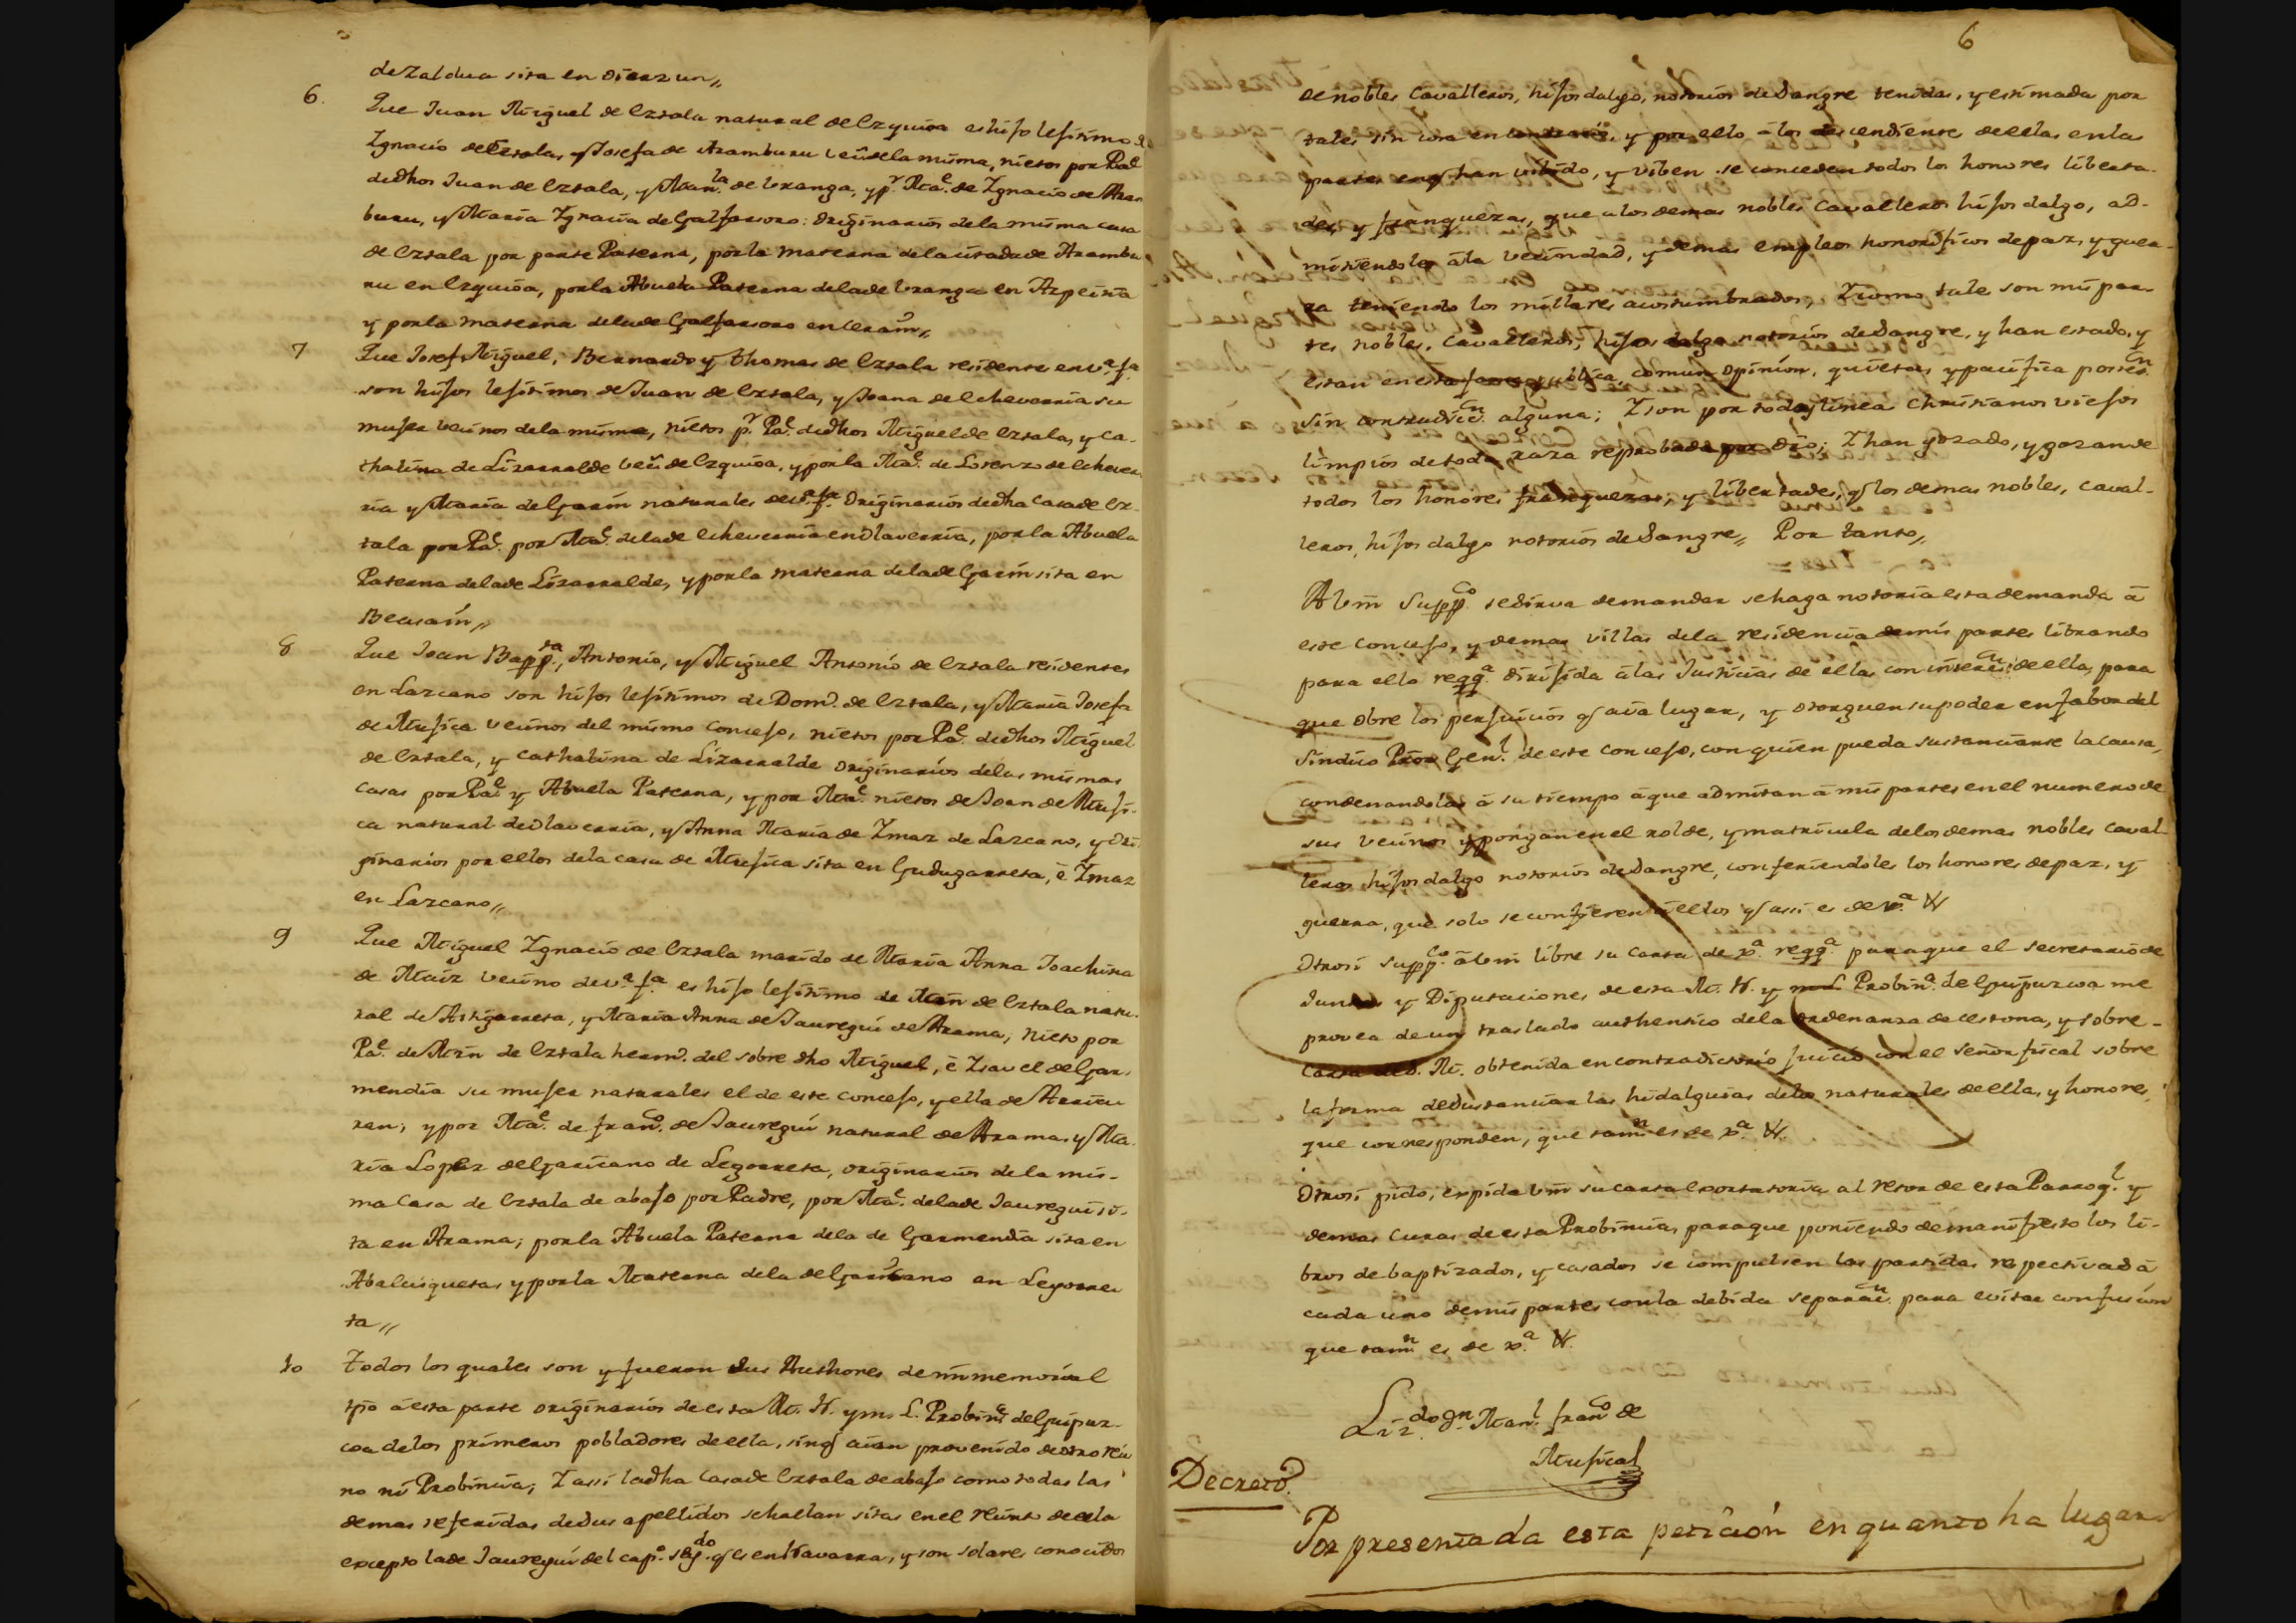 de Zaldua sita en Oiarzun,,
6. Que Juan Miguel de Eztala natural de Ezquioa es hijo lejitimo de
Ygnacio de Eztala, y Josefa de Aramburu veū de la misma, nietos por Pa.e
de dhos Juan de Eztala, y Man.la de Uranga, y p.r Ma.e de Ygnacio de Aram
buru, y Maria Ygnacia de Galfarsoro: Originarios de la misma casa
de Eztala por parte Paterna, por la materna de la citada de Arambu
ru en Ezquioa, por la Abuela Paterna de la de Uranga en Azpeitia
y por la materna de la de Galfarsoro en Cerain,,
7 Que Josef Miguel, Bernardo y Thomas de Eztala residente en v.a f.a
son hijos lejitimos de Juan de Eztala, y Joana de Echeverria su
mujer vecinos de la misma, nietos p.r Pa.e de dhos Miguel de Eztala, y Ca-
thalina de Lizarralde veū de Ezquioa, y por la Ma.e de Lorenzo de Echever
ria y Maria de Garin naturales de v.a f.a Originarios de dha Casa de Ez-
tala por Pa.e por Ma.e de la de Echeverria en Olaverria, por la Abuela
Paterna de la de Lizarralde, y por la materna de la de Garin sita en
Beasaín,,
8 Que Joan Bapp.ta, Antonio, y Miguel Antonio de Eztala residentes
en Lazcano son hijos lejitimos de Dom.o de Eztala, y Maria Josefa
de Mujica vecinos del mismo Concejo, nietos por Pa.e de dhos Miguel
de Eztala, y Cathalina de Lizarralde originarios de las mismas
Casas por Pa.e y Abuela Paterna, y por Ma.e nietos de Joan de Muji-
ca natural de Olaverria, y Anna Maria de Ymaz de Lazcano, y Ori
ginarios por ellos de la casa de Mujica sita en Gudugarreta, è Ymaz
en Lazcano,,
9 Que Miguel Ygnacio de Eztala marido de Maria Anna Joachina
de Maiz vecino de v.a f.a es hijo lejitimo de Min de Eztala natu-
ral de Astigarreta, y Maria Anna de Jauregui de Arama, nieto por
Pa.e de Min de Eztala herm.o del sobre dho Miguel, è Ysavel de Gar-
mendia su mujer naturales el de este concejo, y ella de Arricu
ren; y por Ma.e de fran.co de Jauregui natural de Arama, y Ma-
ria Lopez de Garicano de Legorreta, originarios de la mis-
ma Casa de Eztala de abajo por Padre, por Ma.e de la de Jauregui si-
ta en Arama; por la Abuela Paterna de la de Garmendia sita en
Abalcisqueta, y por la Materna de la de Garicano en Legorre
ta,,
10 Todos los quales son y fueron sus Authores de in memorial
tpō à esta parte originarios de esta M. N. y m. L. Probin.a de Guipuz-
coa de los primeros pobladores de ella, sin q aian provenido de otro Rei
no ni Probincia; Y assi la dha Casa de Eztala de abajo como todas las
demas referidas de sus apellidos se hallan sitas en el recinto de ella
excepto la de Jauregui del cap.o seg.do q es en Navarra, y son solares conocidos
6
de nobles Cavalleros, hijos dalgo, notorios de Sangre tenidas, y estimada por
tales sin cosa en contrario, y por ello à los descendientes de ellas en las
partes en q han vivido, y viben se conceden todos los honores liberta-
des, y franquezas, que a los demas nobles Cavalleros hijos dalgo, ad-
mitiendoles à la vecindad, y demas empleos honorificos de paz, y guer-
ra teniendo los millares acostumbrados; Y como tale son mis par-
tes nobles, Cavalleros, hijos dalgo notorios de Sangre, y han estado, y
estan en esta comun opinion, quieta, y pacifica poses.n
sin contradic.n alguna; Y son por todas linea Christianos viejos
limpios de toda raza reprobada por dro; Y han gozado, y gozan de
todos los honores franquezas, y libertades, q los demas nobles, Caval-
leros, hijos dalgo notorios de Sangre,, Por tanto,,
A Vm Supp.co se sirva demandar se haga notoria esta demanda à
este Concejo, y demas villas de la residencia de mis partes librando
para ello reqq.a dirijida à las Justicias de ellas con inserc.n de ella, para
que Obre los perjuicios q aia lugar, y otorguen su poder en fabor del
Sindico Pror Gen.l de este Concejo, con quien pueda sustanciarse la causa,
condenandolas à su tiempo à que admitan à mis partes en el numero de
sus vecinos y pongan en el rolde, y matricula de los demas nobles Caval-
leros hijos dalgo notorios de Sangre, confiriendoles los honores de paz, y
guerra, que solo se confieren à ellos q assi es de xa. &
Otrosi supp.co à Vm libre su Carta de x.a reqq.a para que el secretario de
Juntas y Diputaciones de esta M. N. y m L Probin.a de Guipuzcoa me
provea de un traslado authentico de la ordenanza de Cestona, y sobre-
Carta de S. M. obtenida en contradictorio juicio con el Señor fiscal sobre
la forma de sustanciar las hidalguias de los naturales de ella, y honores
que corresponden, que tam.n es de x.a &.
Otrosi pido, expida Vm su carta exortatoria al retor de esta Parroq.l y
demas Curas de esta Probincia, para que poniendo de manifiesto los li-
bros de baptizados, y casados se compulsen las partidas respectivas à
cada uno de mis partes con la debida separac.n para evitar confusion
que tam.n es de x.a &.
Liz.do D.n Man.l fran.co de
Mujical
Decreto.
Por presentada esta peticion en quanto ha lugar